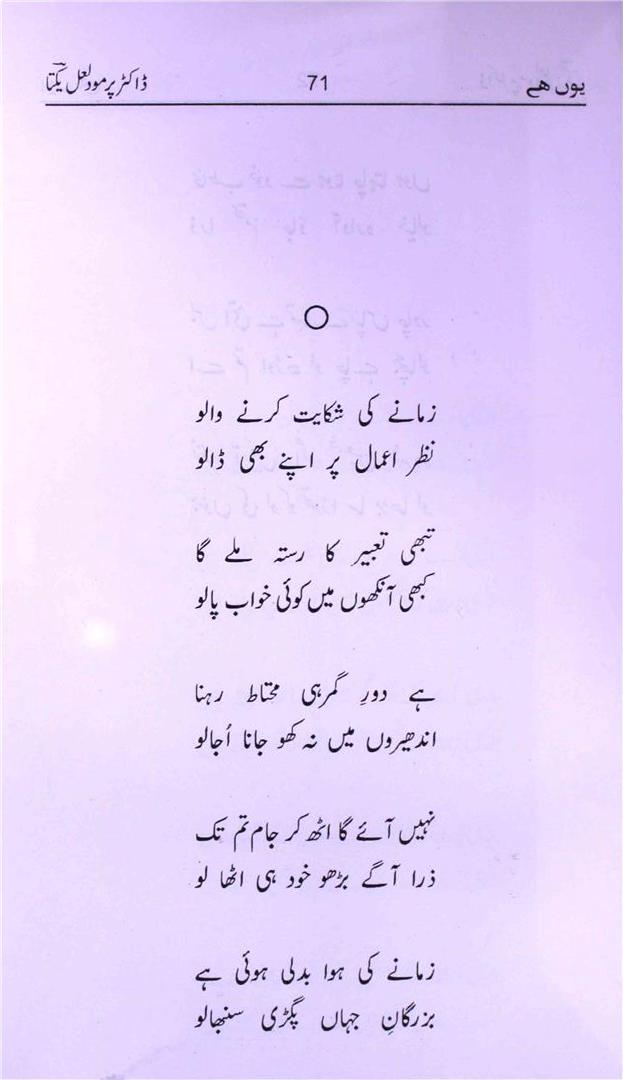 یوں ھے 71 ڈاکٹر پرمود لعل یکتا
زمانے کی شکایت کرنے والو
نظر اعمال پر اپنے بھی ڈالو
تبھی تعبیر کا رستہ ملے گا
کبھی آنکھوں میں کوئی خواب پالو
ہے دورِ گمرہی محتاط رہنا
اندھیروں میں نہ کھو جانا اُجالو
نہیں آئے گا اٹھ کر جام تم تک
ذرا آگے بڑھو خود ہی اٹھا لو
زمانے کی ہوا بدلی ہوئی ہے
بزرگانِ جہاں پگڑی سنبھالو